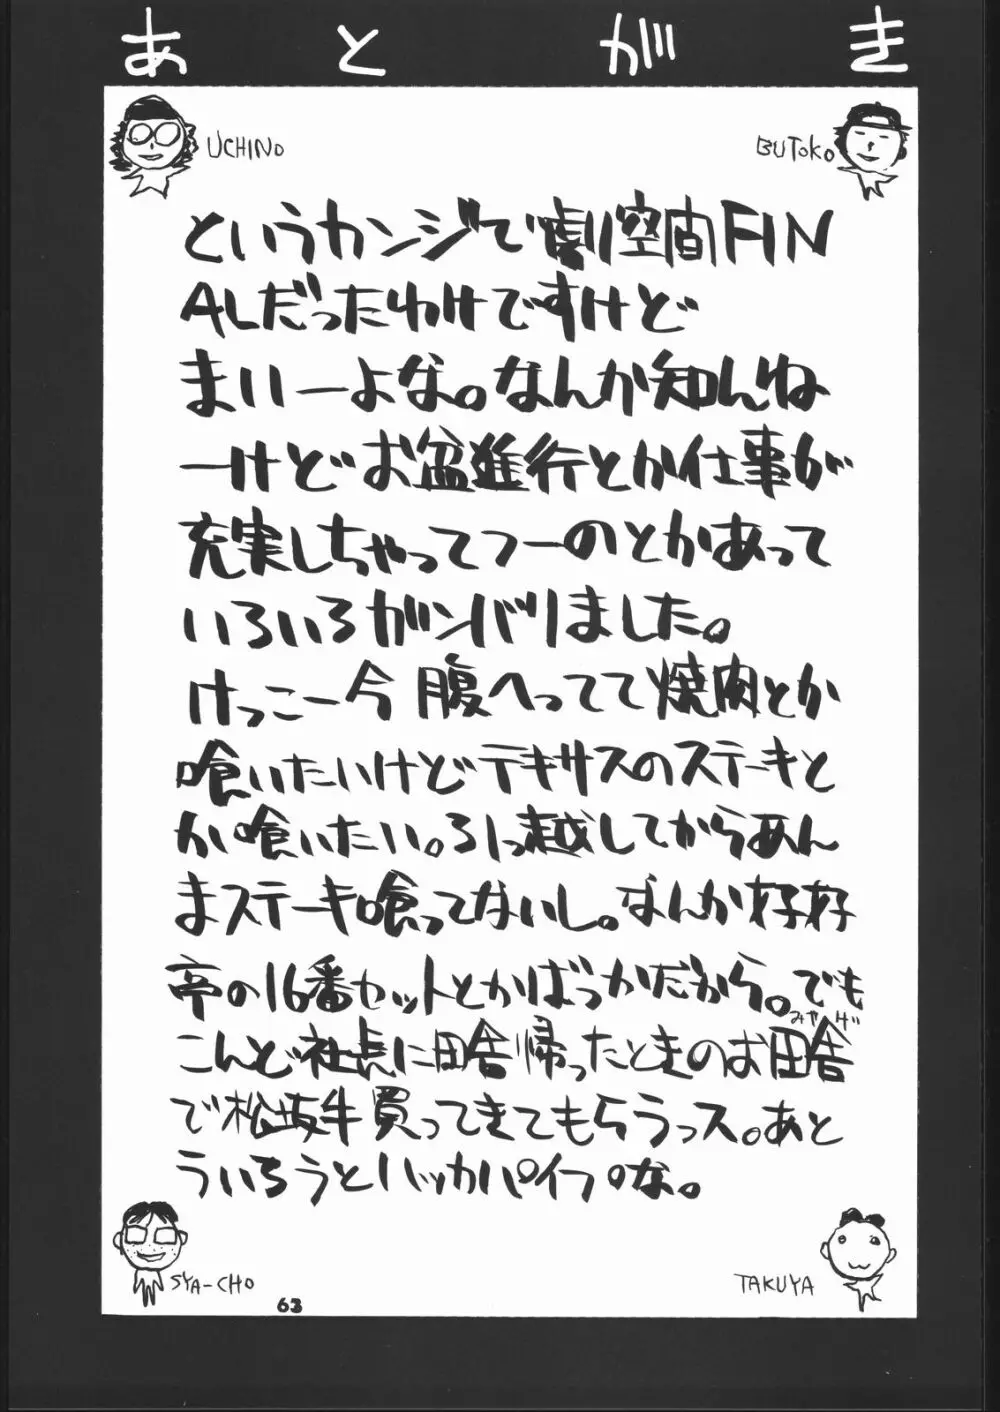 あとがき
UCHINO
BUTOKO
というカンジで劇空間FIN
ALだったわけですけど
まいーよな。なんか知んね
ーけどお盆進行とか仕事が
充実しちゃってつーのとかあって
いろいろガンバリました。
けっこー今腹へってて焼肉とか
喰いたいけどテキサスのステーキと
か喰いたい。引っ越してからあん
まステーキ喰ってないし。なんか好好
亭の16番セットとかばっかだから。でも
こんど社長に田舎帰ったときのお田舎
みやげ
で松坂牛買ってきてもらうっス。あと
ういろうとハッカパイプな。
SYA-CHO
TAKUYA
63